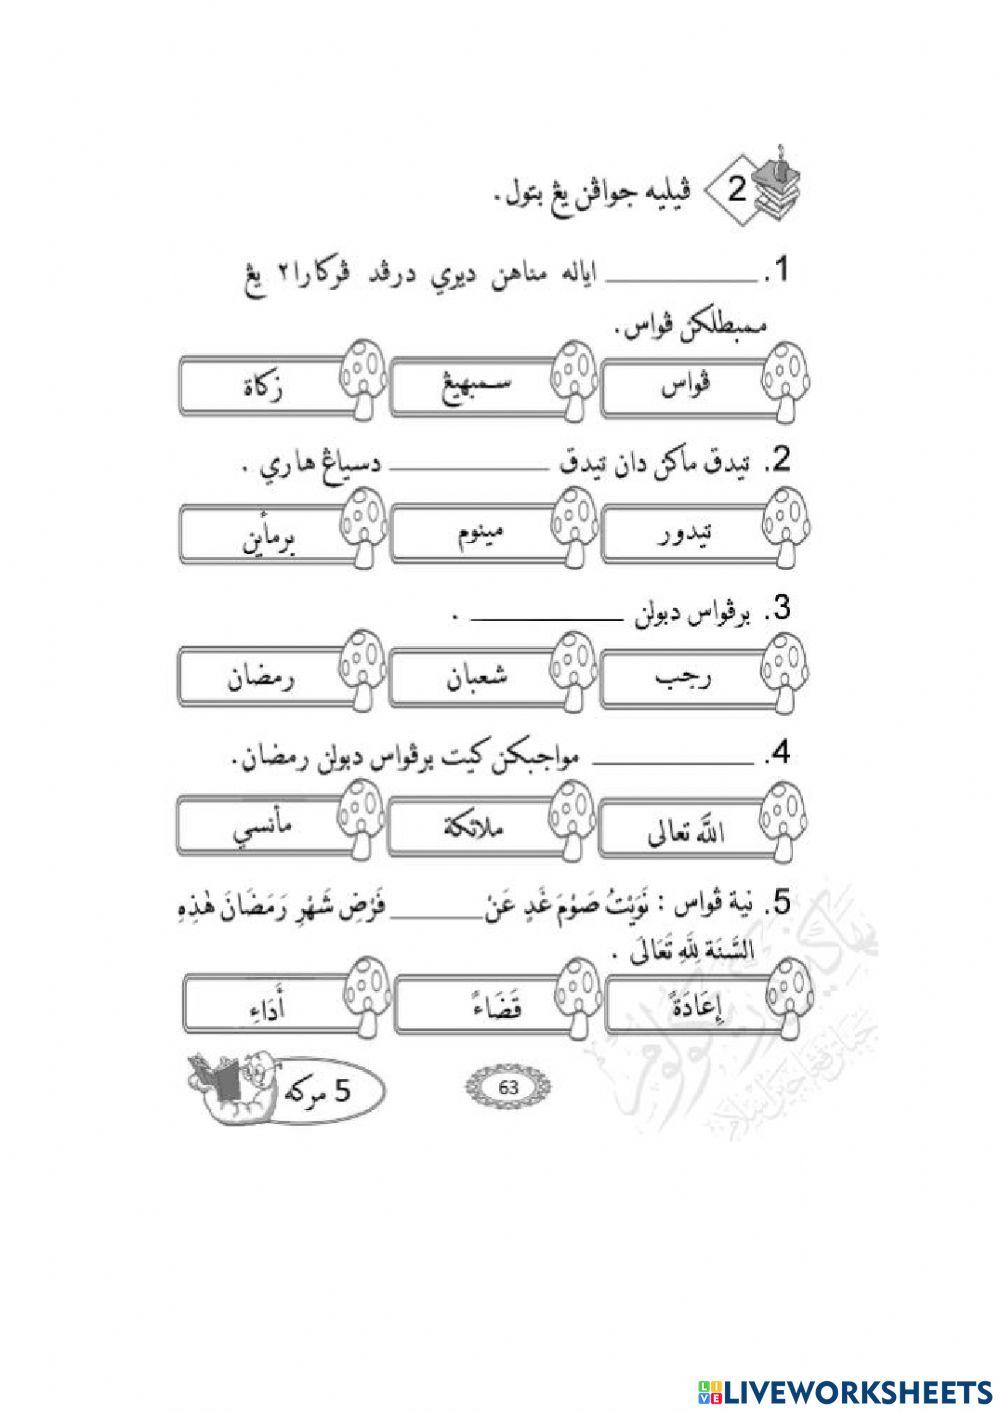 2 ڤيليه جواڤن يڠ بتول.
1. ____________ اياله مناهن ديري درڤد ڤركارا٢ يڠ
ممبطلكن ڤواس.
ڤواس سمبهيڠ زكاة
2. تيدق ماكن دان تيدق ____________ دسياڠ هاري .
تيدور مينوم برمأين
3. برڤواس دبولن ____________ .
رجب شعبان رمضان
4. ____________ مواجبكن كيت برڤواس دبولن رمضان.
اللّٰه تعالى ملائكة مأنسي
5. نية ڤواس : نَوَيْتُ صَوْمَ غَدٍ عَنْ ________ فَرْضِ شَهْرِ رَمَضَانَ هٰذِهِ
السَّنَة لِلّٰهِ تَعَالَى .
إِعَادَةً قَضَاءً أَدَاءِ
5 مركه
63
LIVEWORKSHEETS